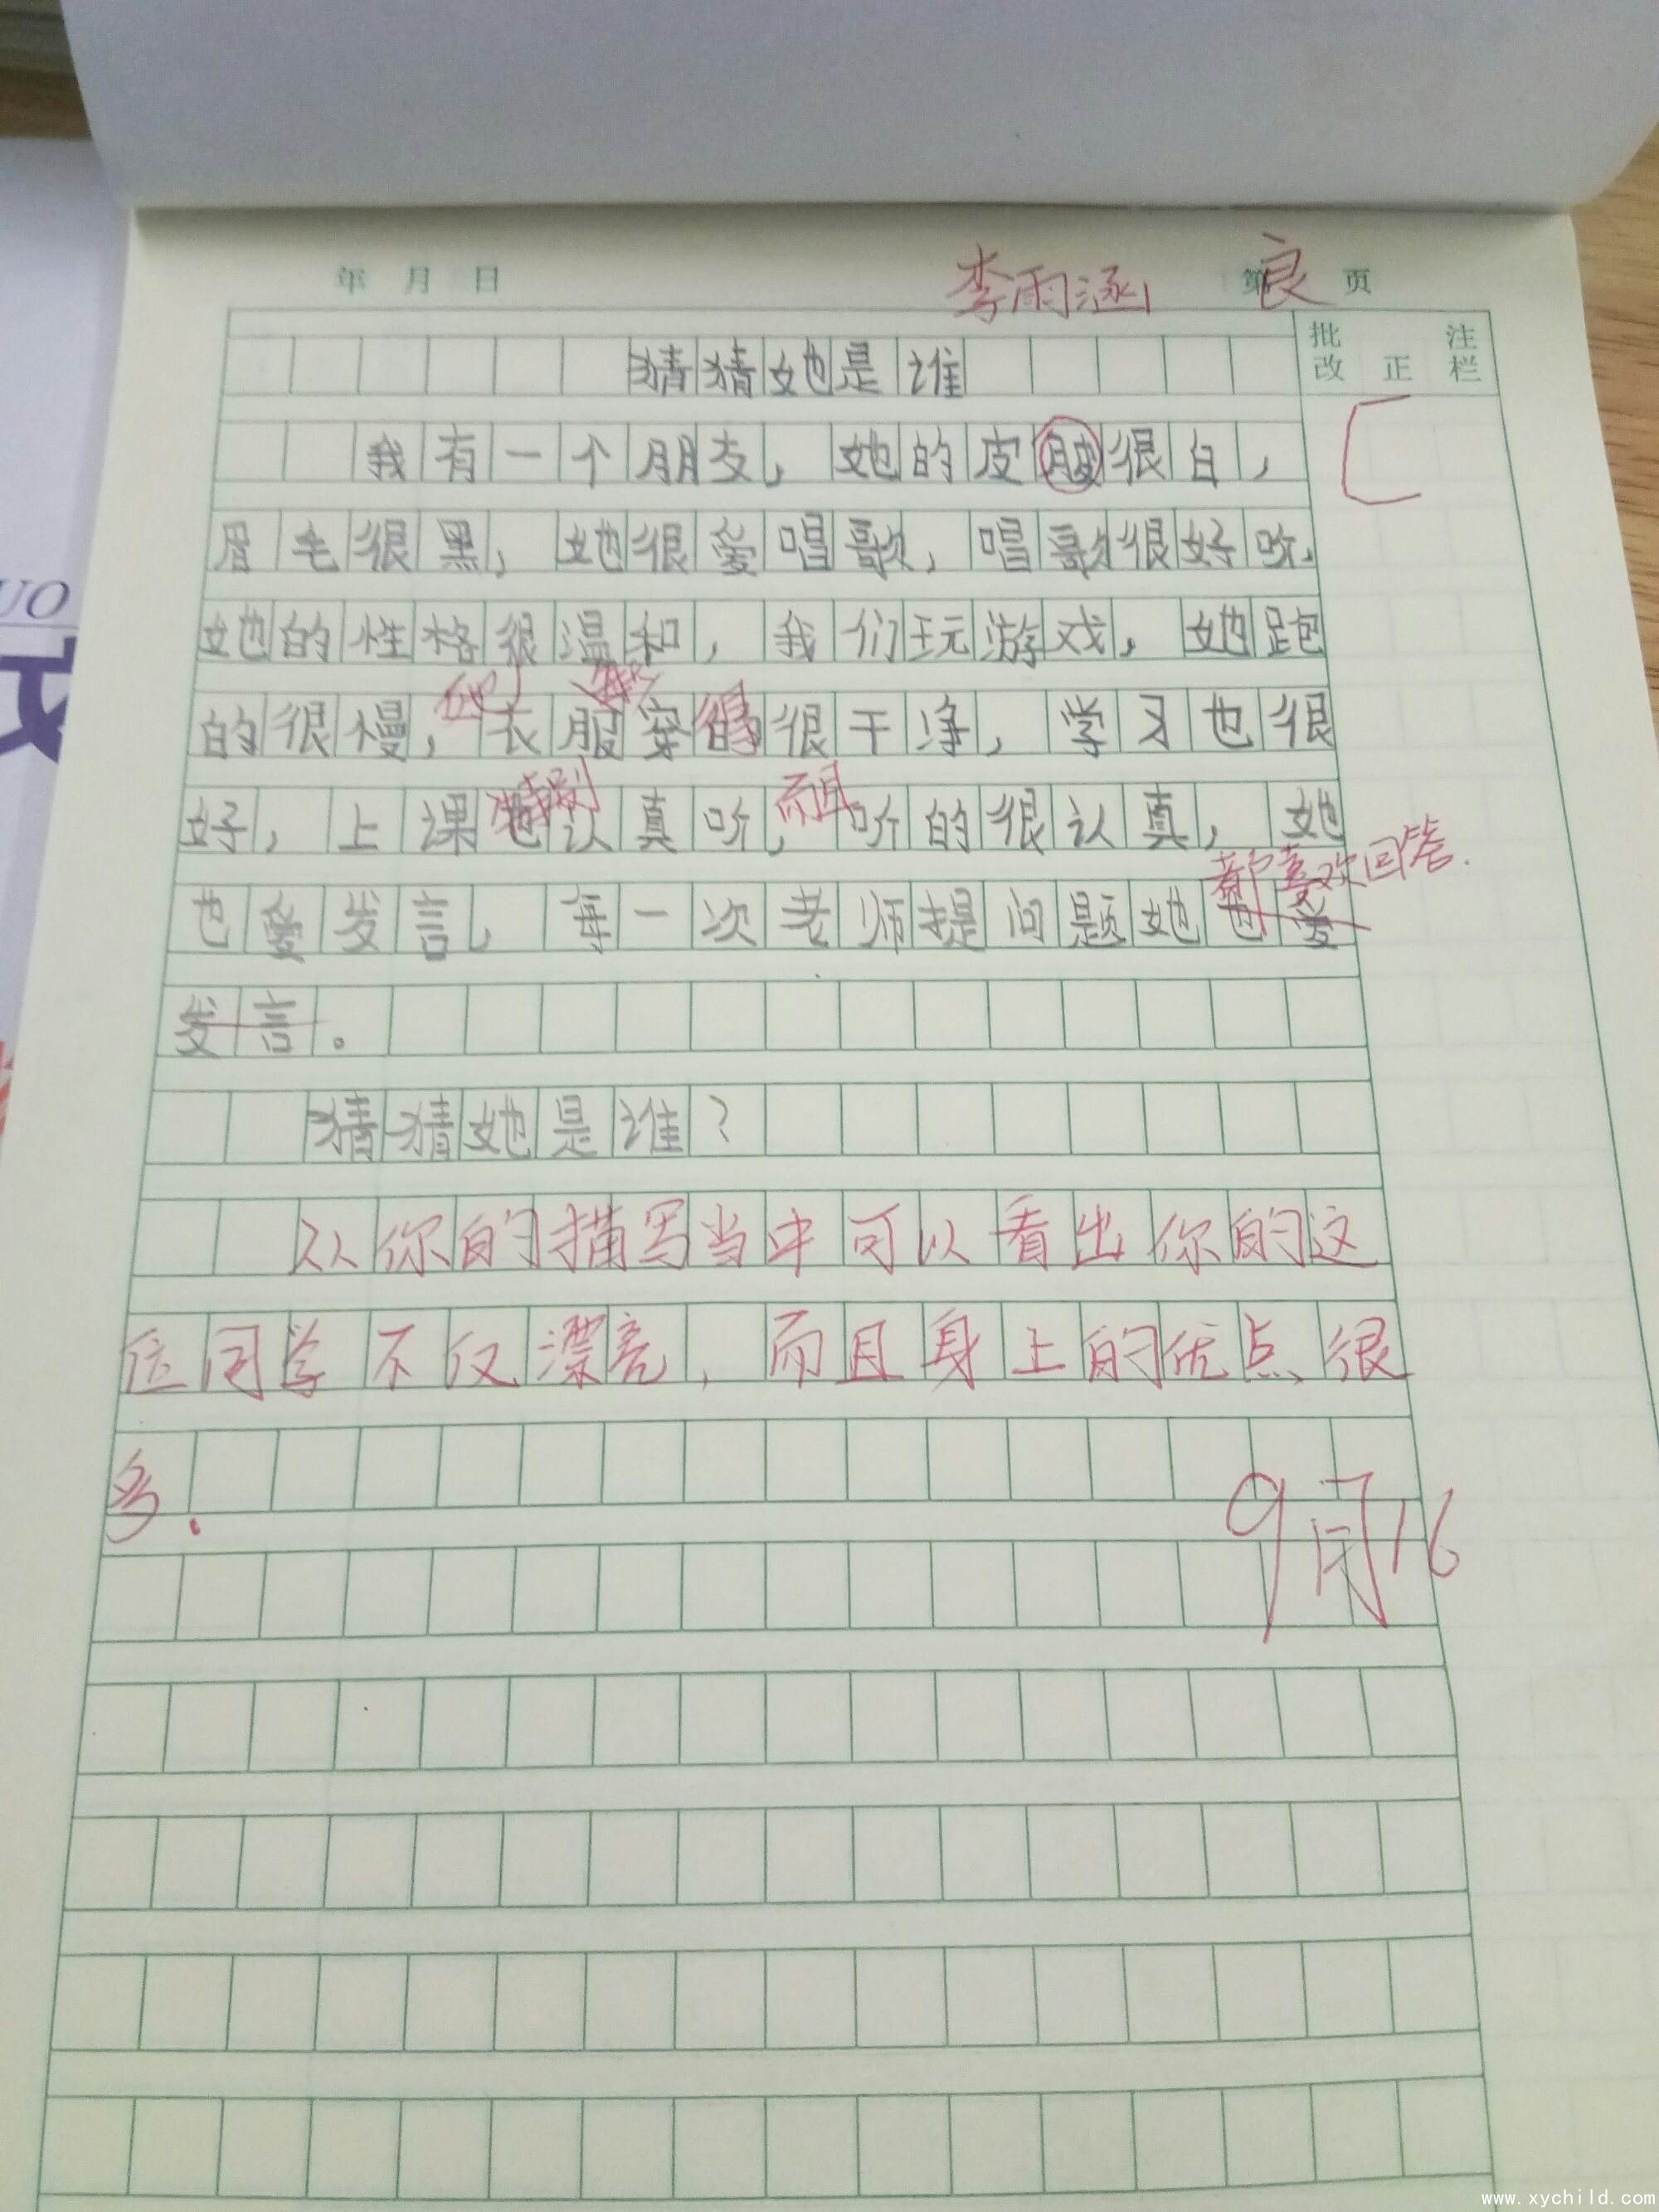 UO
年 月 日
李雨涵
第 良 页
批注
改正栏
猜猜她是谁
我有一个朋友，她的皮肤很白，
眉毛很黑，她很爱唱歌，唱歌很好听，
她的性格很温和，我们玩游戏，她跑
她
的很慢，衣服穿得很干净，学习也很
特别 而且
好，上课她认真听，听的很认真，她
都喜欢回答.
也爱发言，每一次老师提问题她也爱
发言。
猜猜她是谁？
从你的描写当中可以看出你的这
位同学不仅漂亮，而且身上的优点很
多.
9月16
www.xychild.com